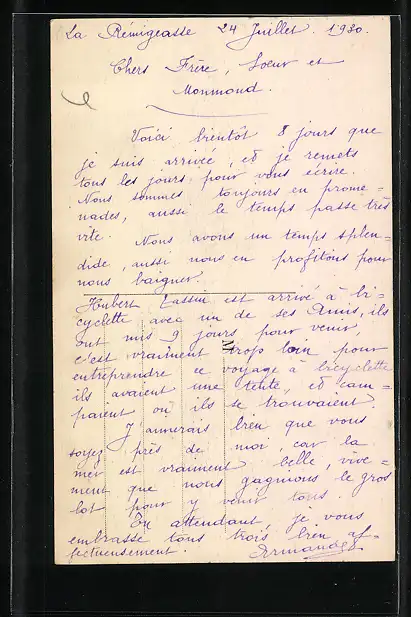 La Rémigeasse 24 Juillet. 1930.
Chers Frère, Soeur et
Monmond.
Voici bientôt 8 jours que
je suis arrivée, et je remets
tous les jours pour vous écrire.
Nous sommes toujours en prome-
nades, aussi le temps passe très
vite. Nous avons un temps splen-
dide, aussi nous en profitons pour
nous baigner.
Hubert est arrivé à bi-
cyclette avec un de ses amis, ils
ont mis 9 jours pour venir,
c'est vraiment trop loin pour
entreprendre ce voyage à bicyclette
ils avaient une tente, et cam-
paient où ils se trouvaient.
J'aimerais bien que vous
soyez près de moi, car la
mer est vraiment belle, vive-
ment que nous gagnions le gros
lot pour y venir tous.
En attendant, je vous
embrasse tous trois bien af-
fectueusement. Armande